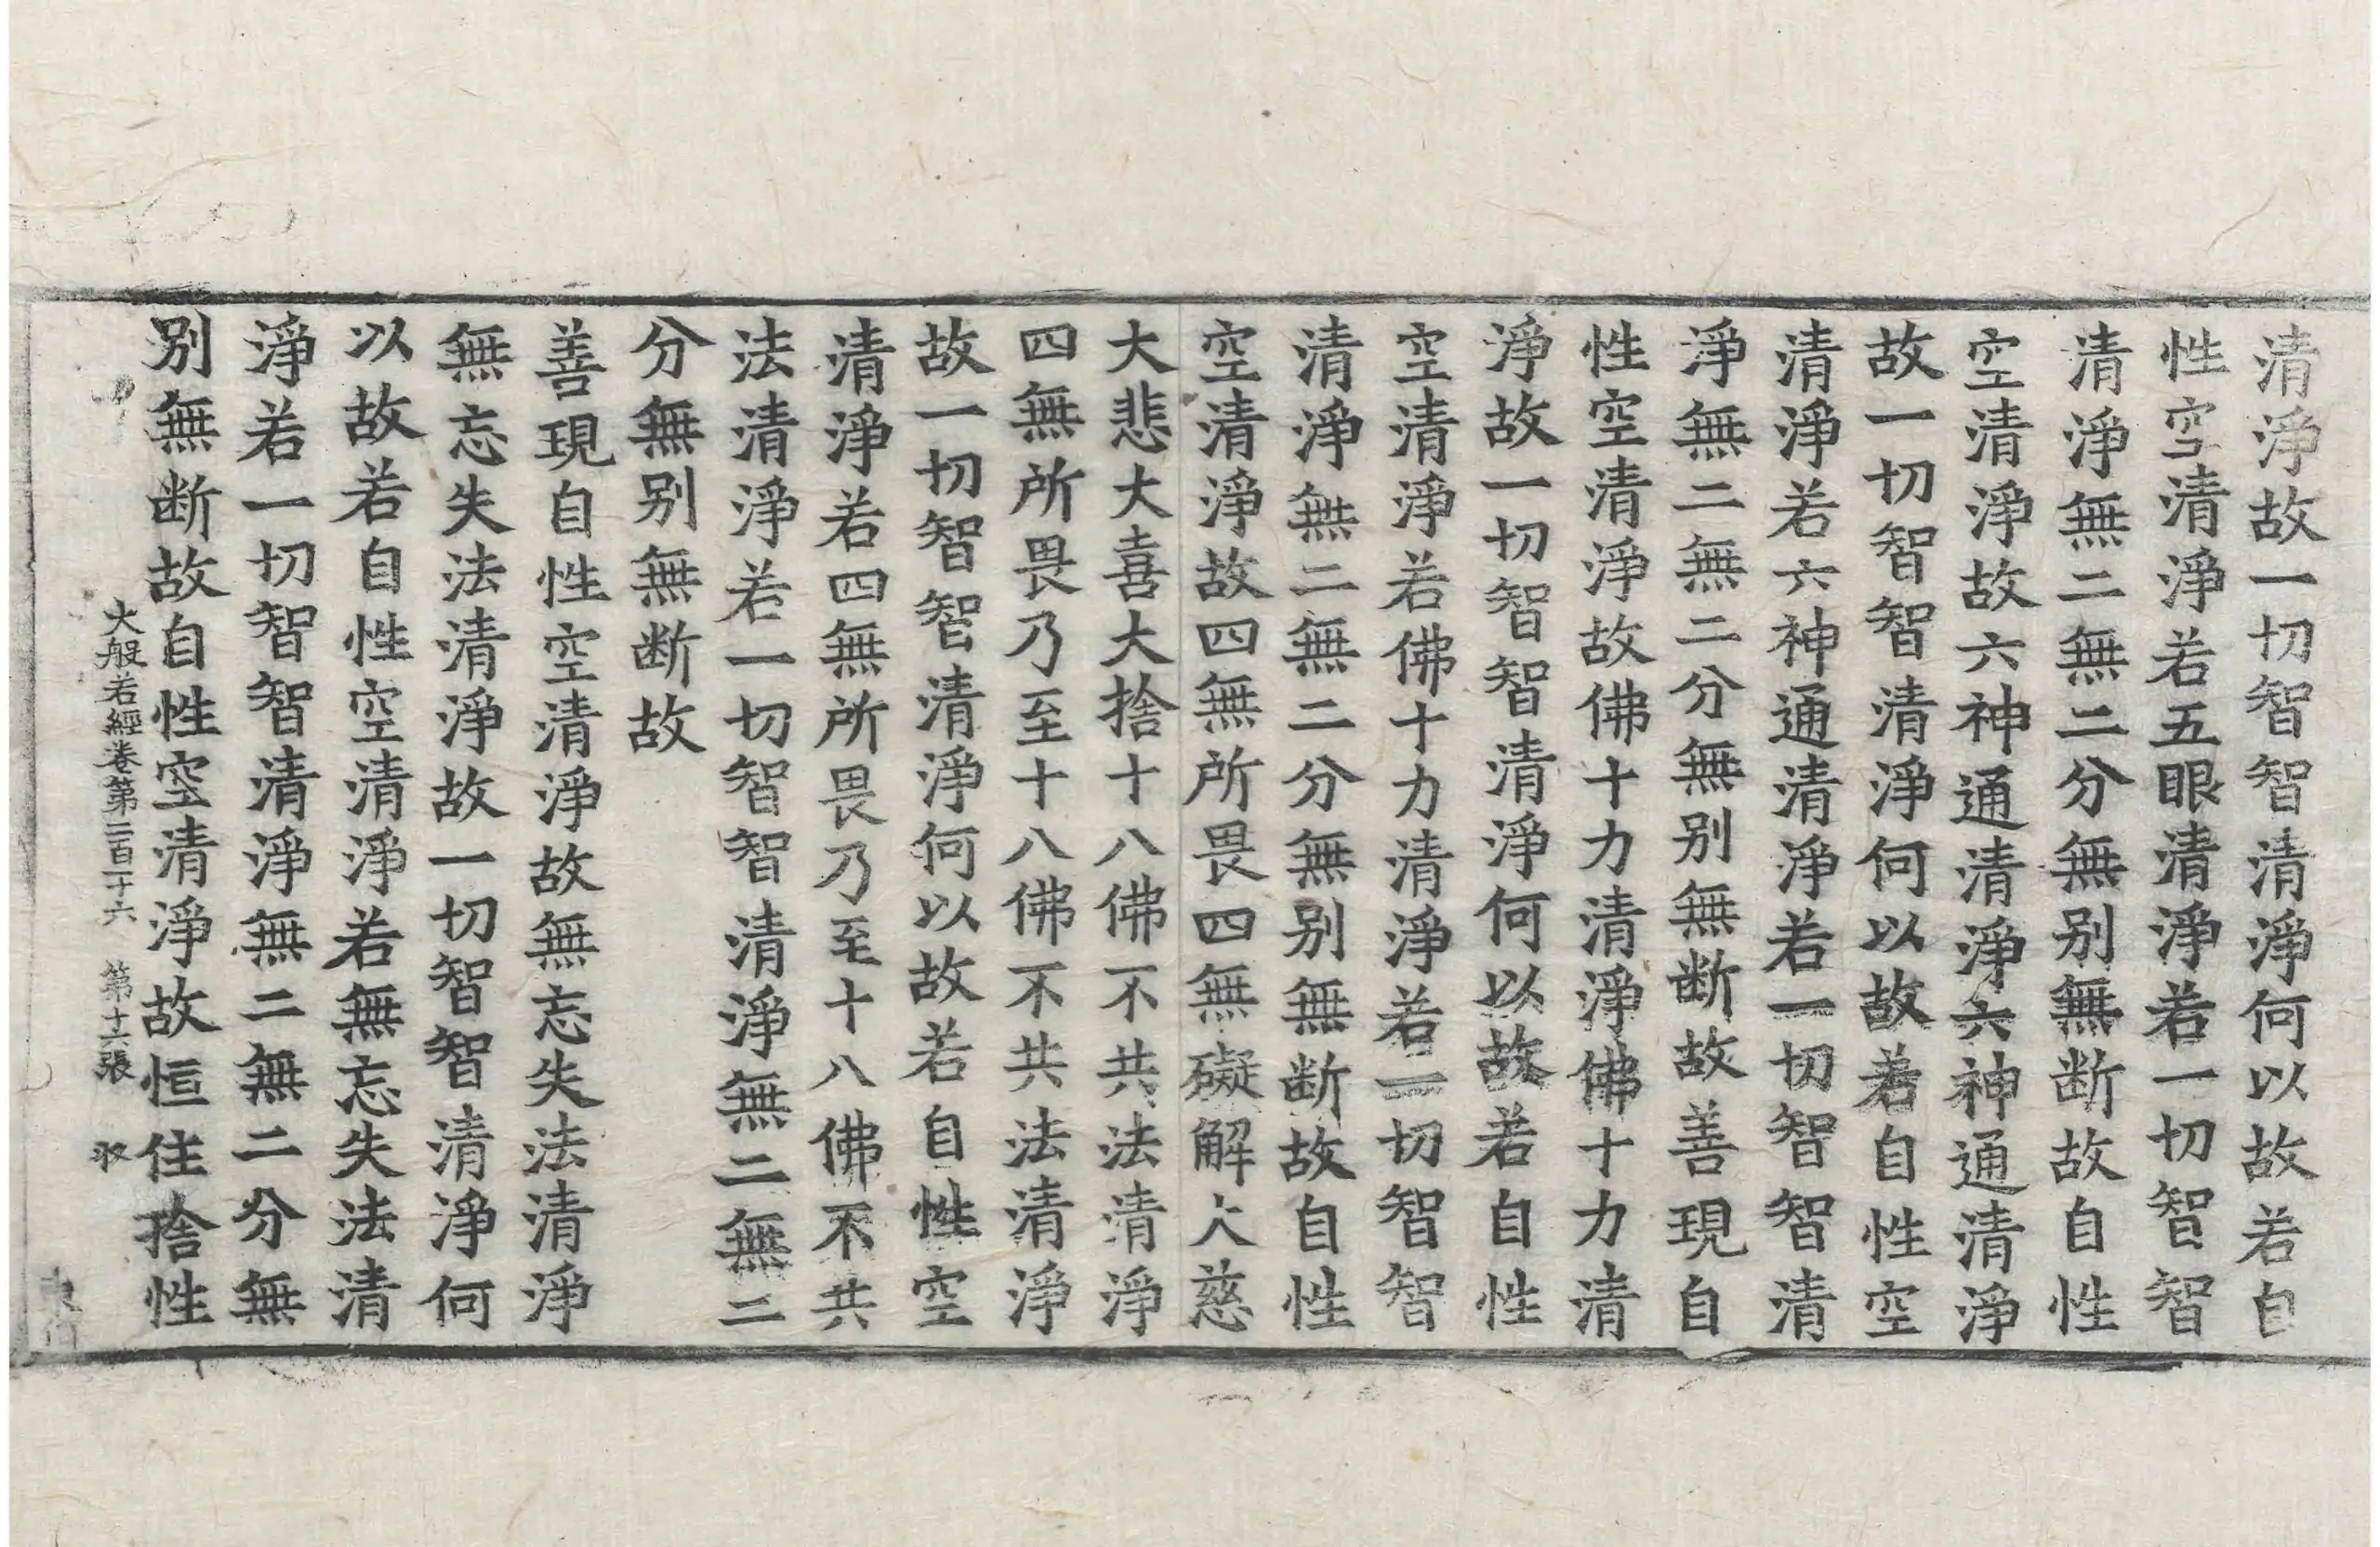 清淨故一切智智清淨何以故若自
性空清淨若五眼清淨若一切智智
清淨無二無二分無別無断故自性
空清淨故六神通清淨六神通清淨
故一切智智清淨何以故若自性空
清淨若六神通清淨若一切智智清
淨無二無二分無別無断故善現自
性空清淨故佛十力清淨佛十力清
淨故一切智智清淨何以故若自性
空清淨若佛十力清淨若一切智智
清淨無二無二分無別無断故自性
空清淨故四無所畏四無礙解大慈
大悲大喜大捨十八佛不共法清淨
四無所畏乃至十八佛不共法清淨
故一切智智清淨何以故若自性空
清淨若四無所畏乃至十八佛不共
法清淨若一切智智清淨無二無二
分無別無断故
善現自性空清淨故無忘失法清淨
無忘失法清淨故一切智智清淨何
以故若自性空清淨若無忘失法清
淨若一切智智清淨無二無二分無
別無断故自性空清淨故恒住捨性
大般若經卷第二百二十六 第十六張